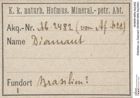 K. k. naturh. Hofmus. Mineral.-petr. Abt.
Akq.-Nr. Ab 2482 (von Af 322)
Name Diamant
Fundort Brasilien?